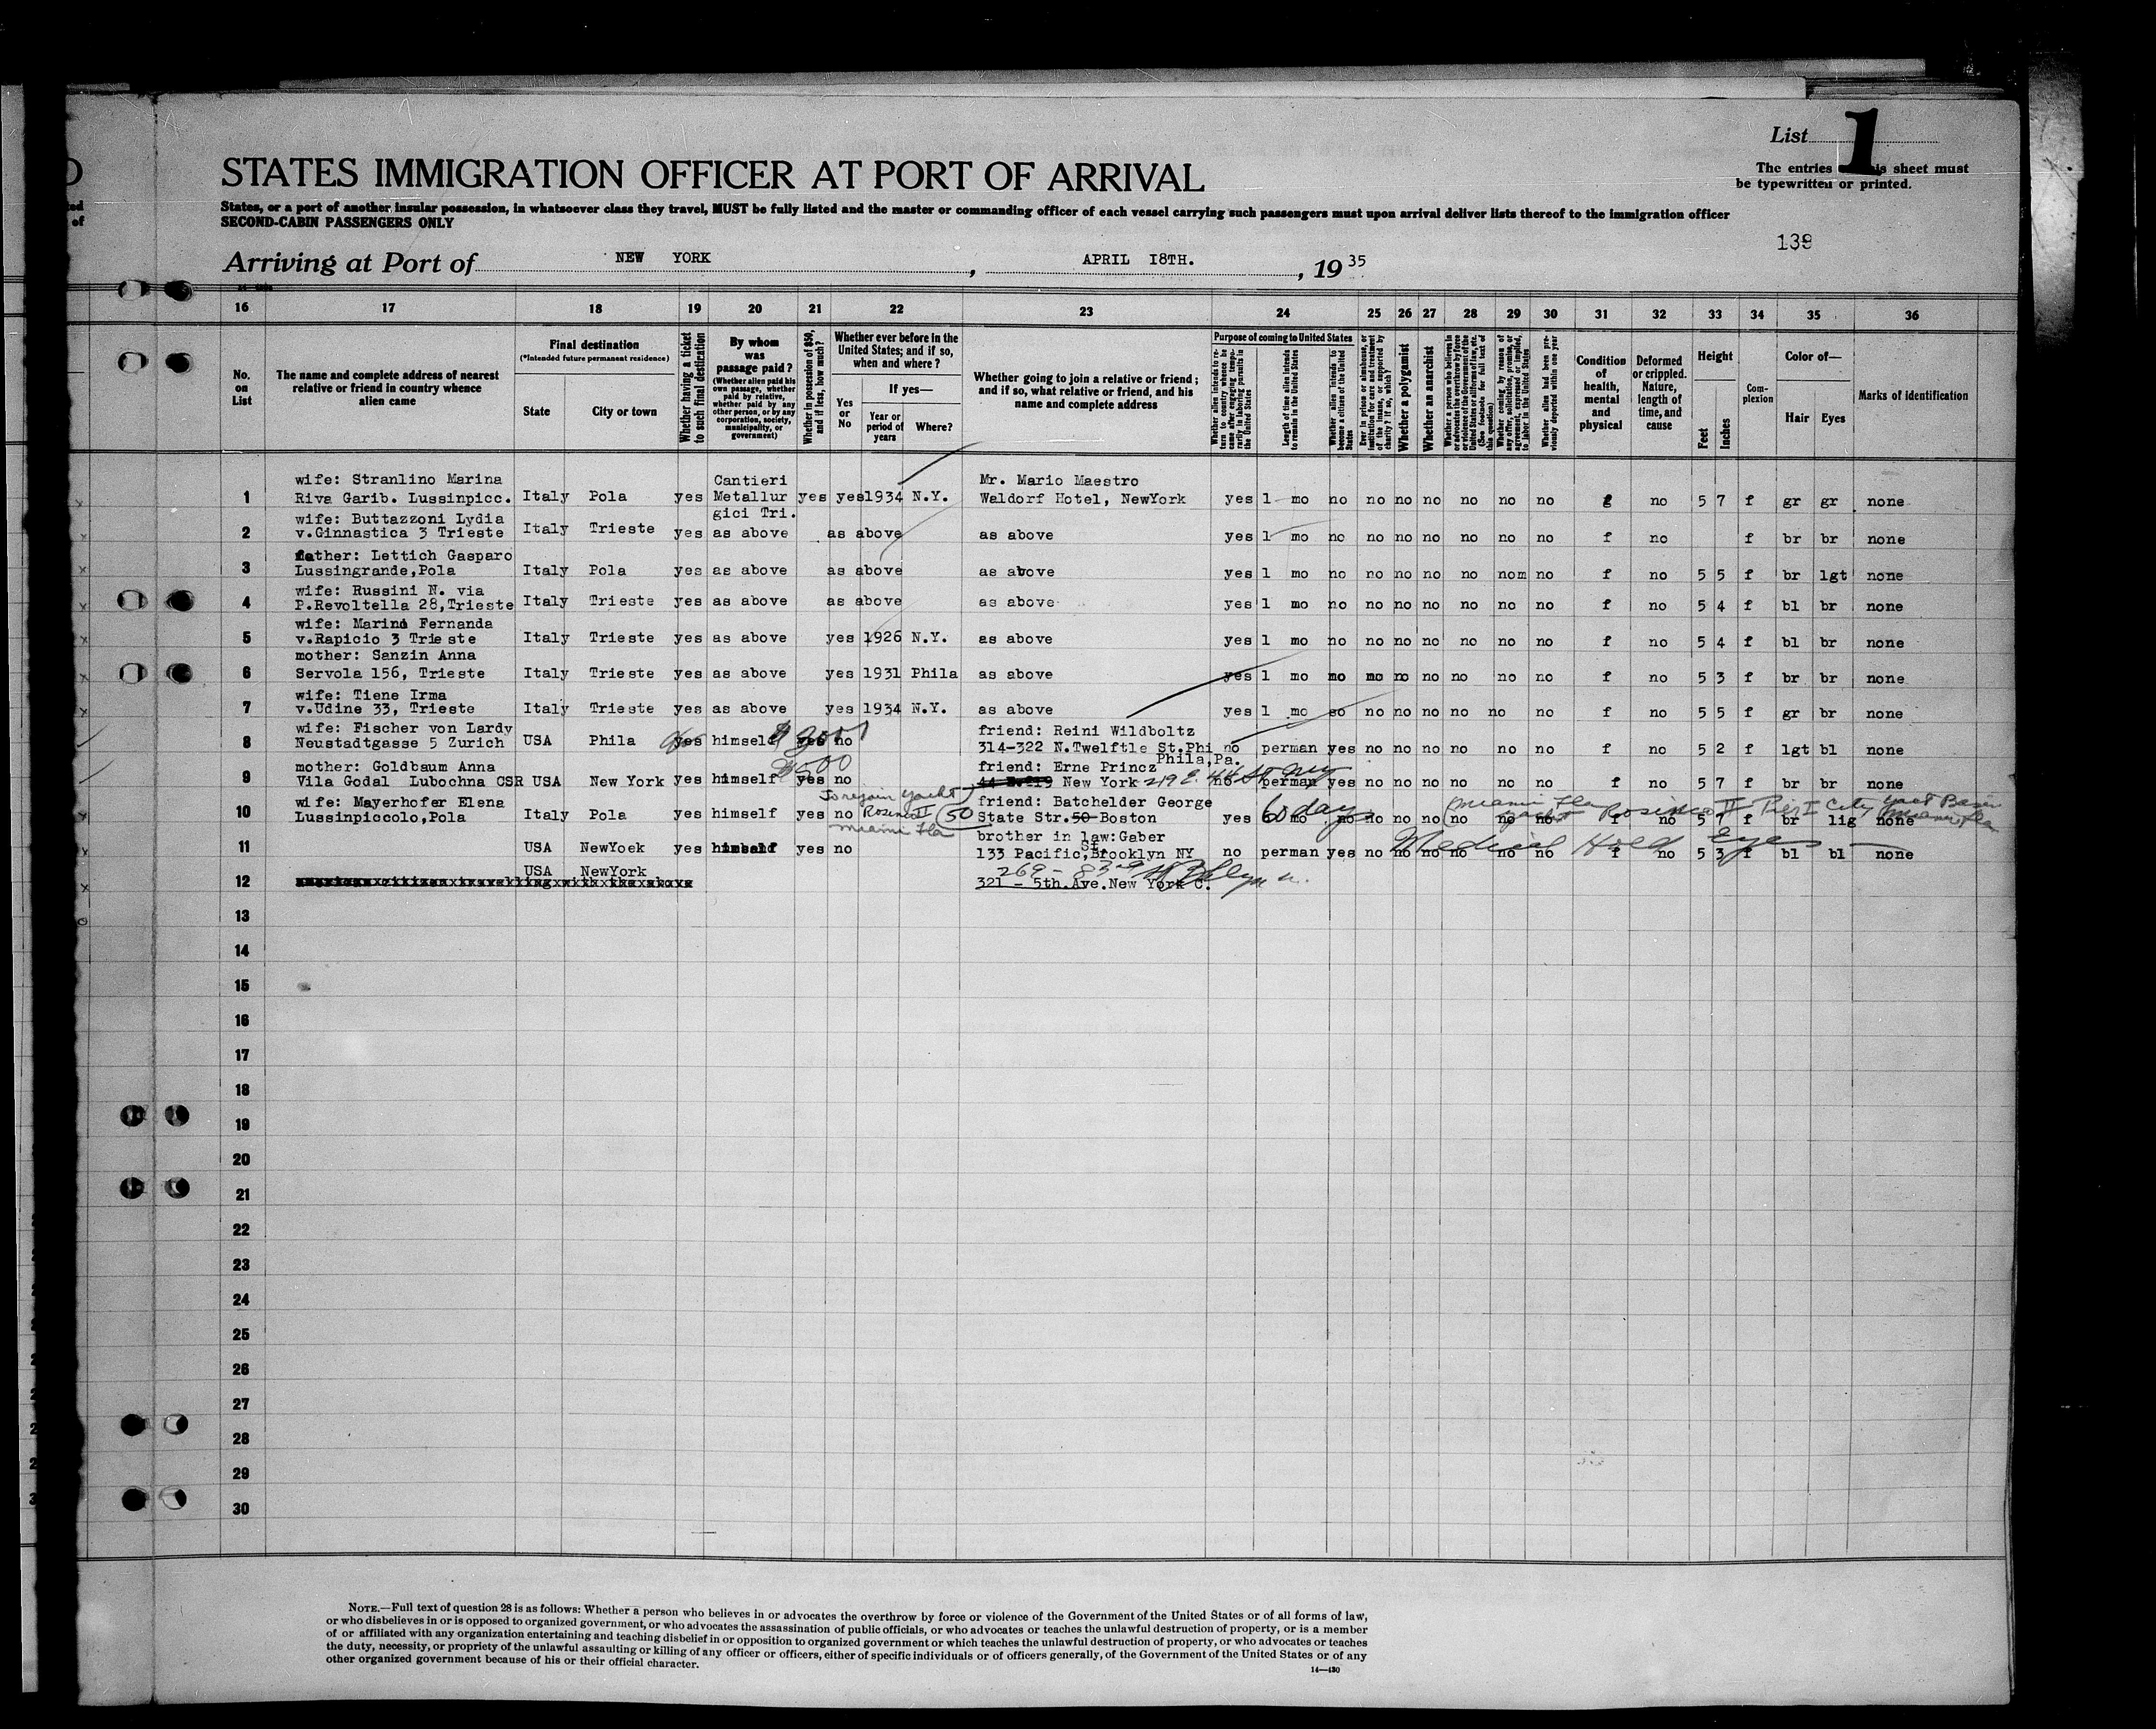 List 1
STATES IMMIGRATION OFFICER AT PORT OF ARRIVAL
The entries is sheet must
be typewritten or printed.
States, or a port of another insular possession, in whatsoever class they travel, MUST be fully listed and the master or commanding officer of each vessel carrying such passengers must upon arrival deliver lists thereof to the immigration officer
SECOND-CABIN PASSENGERS ONLY
138
Arriving at Port of NEW YORK, APRIL 18TH., 1935
16 17 18 19 20 21 22 23 24 25 26 27 28 29 30 31 32 33 34 35 36
No. on List
The name and complete address of nearest relative or friend in country whence alien came
Final destination
(*Intended future permanent residence)
State
City or town
Whether having a ticket to such final destination
By whom was passage paid?
(Whether alien paid his own passage, whether paid by relative, whether paid by any other person, or by any corporation, society, municipality, or government)
Whether in possession of $50, and if less, how much?
Whether ever before in the United States; and if so, when and where?
Yes or No
If yes—
Year or period of years
Where?
Whether going to join a relative or friend; and if so, what relative or friend, and his name and complete address
Purpose of coming to United States
Whether alien intends to return to country whence he came after engaging temporarily in laboring pursuits in the United States
Length of time alien intends to remain in the United States
Whether alien intends to become a citizen of the United States
Ever in prison or almshouse, or institution for care and treatment of the insane, or supported by charity? If so, which?
Whether a polygamist
Whether an anarchist
Whether a person who believes in or advocates the overthrow by force or violence of the Government of the United States or all forms of law, etc. (See footnote for full text of this question)
Whether coming by reason of any offer, solicitation, promise, or agreement, expressed or implied, to labor in the United States
Whether alien had been previously deported within one year
Condition of health, mental and physical
Deformed or crippled. Nature, length of time, and cause
Height
Feet
Inches
Complexion
Color of—
Hair
Eyes
Marks of identification
wife: Stranlino Marina Cantieri Mr. Mario Maestro
1 Riva Garib. Lussinpicc. Italy Pola yes Metallur yes yes 1934 N.Y. Waldorf Hotel, NewYork yes 1 mo no no no no no no no g no 5 7 f gr gr none
gici Tri.
wife: Buttazzoni Lydia
2 v.Ginnastica 3 Trieste Italy Trieste yes as above as above as above yes 1 mo no no no no no no no f no f br br none
father: Lettich Gasparo
3 Lussingrande,Pola Italy Pola yes as above as above as above yes 1 mo no no no no no nom no f no 5 5 f br lgt none
wife: Russini N. via
4 P.Revoltella 28,Trieste Italy Trieste yes as above as above as above yes 1 mo no no no no no no no f no 5 4 f bl br none
wife: Marino Fernanda
5 v.Rapicio 3 Trieste Italy Trieste yes as above yes 1926 N.Y. as above yes 1 mo no no no no no no no f no 5 4 f bl br none
mother: Sanzin Anna
6 Servola 156, Trieste Italy Trieste yes as above yes 1931 Phila as above yes 1 mo no no no no no no no f no 5 3 f br br none
wife: Tiene Irma
7 v.Udine 33, Trieste Italy Trieste yes as above yes 1934 N.Y. as above yes 1 mo so no no no no no no f no 5 5 f gr br none
wife: Fischer von Lardy friend: Reini Wildboltz
8 Neustadtgasse 5 Zurich USA Phila yes himself yes no 314-322 N.Twelftle St.Phi no perman yes no no no no no no f no 5 2 f lgt bl none
Phila,Pa.
mother: Goldbaum Anna $500 friend: Erne Princz
9 Vila Godal Lubochna CSR USA New York yes himself yes no New York 219 E. 44 St NY no perman yes no no no no no no f no 5 7 f br br none
wife: Mayerhofer Elena To rejoin yacht friend: Batchelder George
10 Lussinpiccolo,Pola Italy Pola yes himself yes no 50 State Str.50 Boston yes 60 days mo no no no no no no no f no 5 7 f br lig none
Miami Fla
Miami Fla Yacht Pier I City Yact Basin Miami Fla
brother in law:Gaber
11 USA NewYoek yes himself yes no 133 Pacific,St.Brooklyn NY no perman yes no no no no no no f no 5 3 f bl bl none
Medical Hold Eyes
USA NewYork 269 - 83rd St Bklyn
12 american citizen travelling with the above 321 - 5th.Ave.New York C.
13
14
15
16
17
18
19
20
21
22
23
24
25
26
27
28
29
30
NOTE.—Full text of question 28 is as follows: Whether a person who believes in or advocates the overthrow by force or violence of the Government of the United States or of all forms of law,
or who disbelieves in or is opposed to organized government, or who advocates the assassination of public officials, or who advocates or teaches the unlawful destruction of property, or is a member
of or affiliated with any organization entertaining and teaching disbelief in or opposition to organized government or which teaches the unlawful destruction of property, or who advocates or teaches
the duty, necessity, or propriety of the unlawful assaulting or killing of any officer or officers, either of specific individuals or of officers generally, of the Government of the United States or of any
other organized government because of his or their official character.
14—430